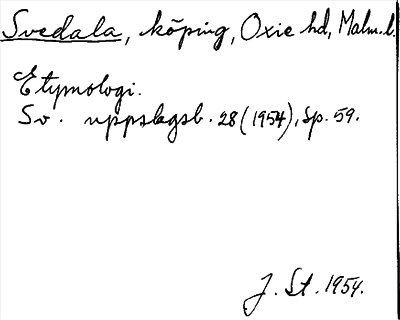 Svedala, köping, Oxie hd, Malm. l.
Etymologi.
Sv. uppslagsb. 28 (1954), sp. 59.
J. St. 1954.